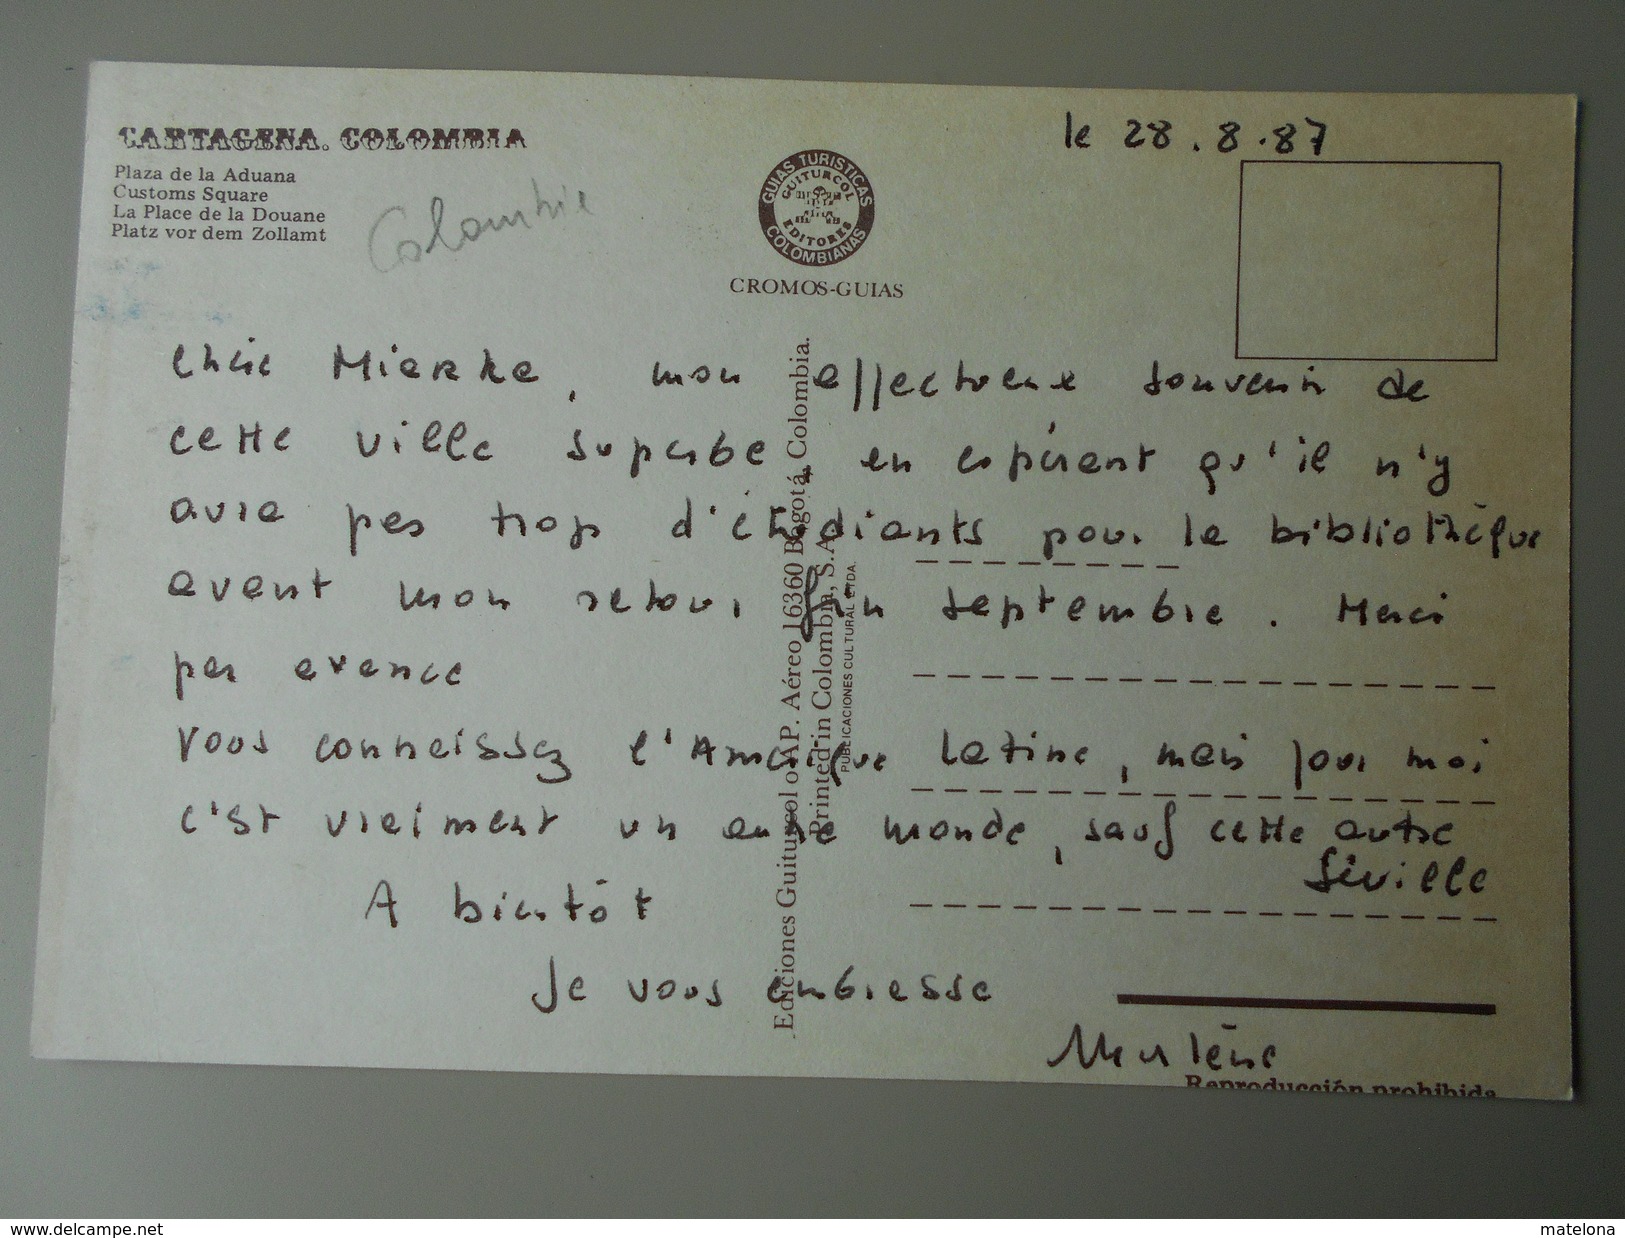 CARTAGENA. COLOMBIA
Plaza de la Aduana
Customs Square
La Place de la Douane
Platz vor dem Zollamt
Colombie
GUIAS TURISTICAS
GUITURCOL
EDITORES
COLOMBIANAS
CROMOS-GUIAS
le 28.8.87
Chère mon affectueux souvenir de
cette ville superbe, en espérant qu'il n'y
aura pas trop d'étudiants pour la bibliothèque
avant mon retour fin septembre. Merci
par avance
Vous connaissez l'Amérique Latine, mais pour moi
c'est vraiment un autre monde, sauf cette autre
Séville
A bientôt
Je vous embrasse
Marlène
Ediciones Guiturcol o AP. Aéreo 16360 Bogotá, Colombia.
Printed in Colombia, S.A.
PUBLICACIONES CULTURAL LTDA.
Reproducción prohibida
www.delcampe.net
matelona